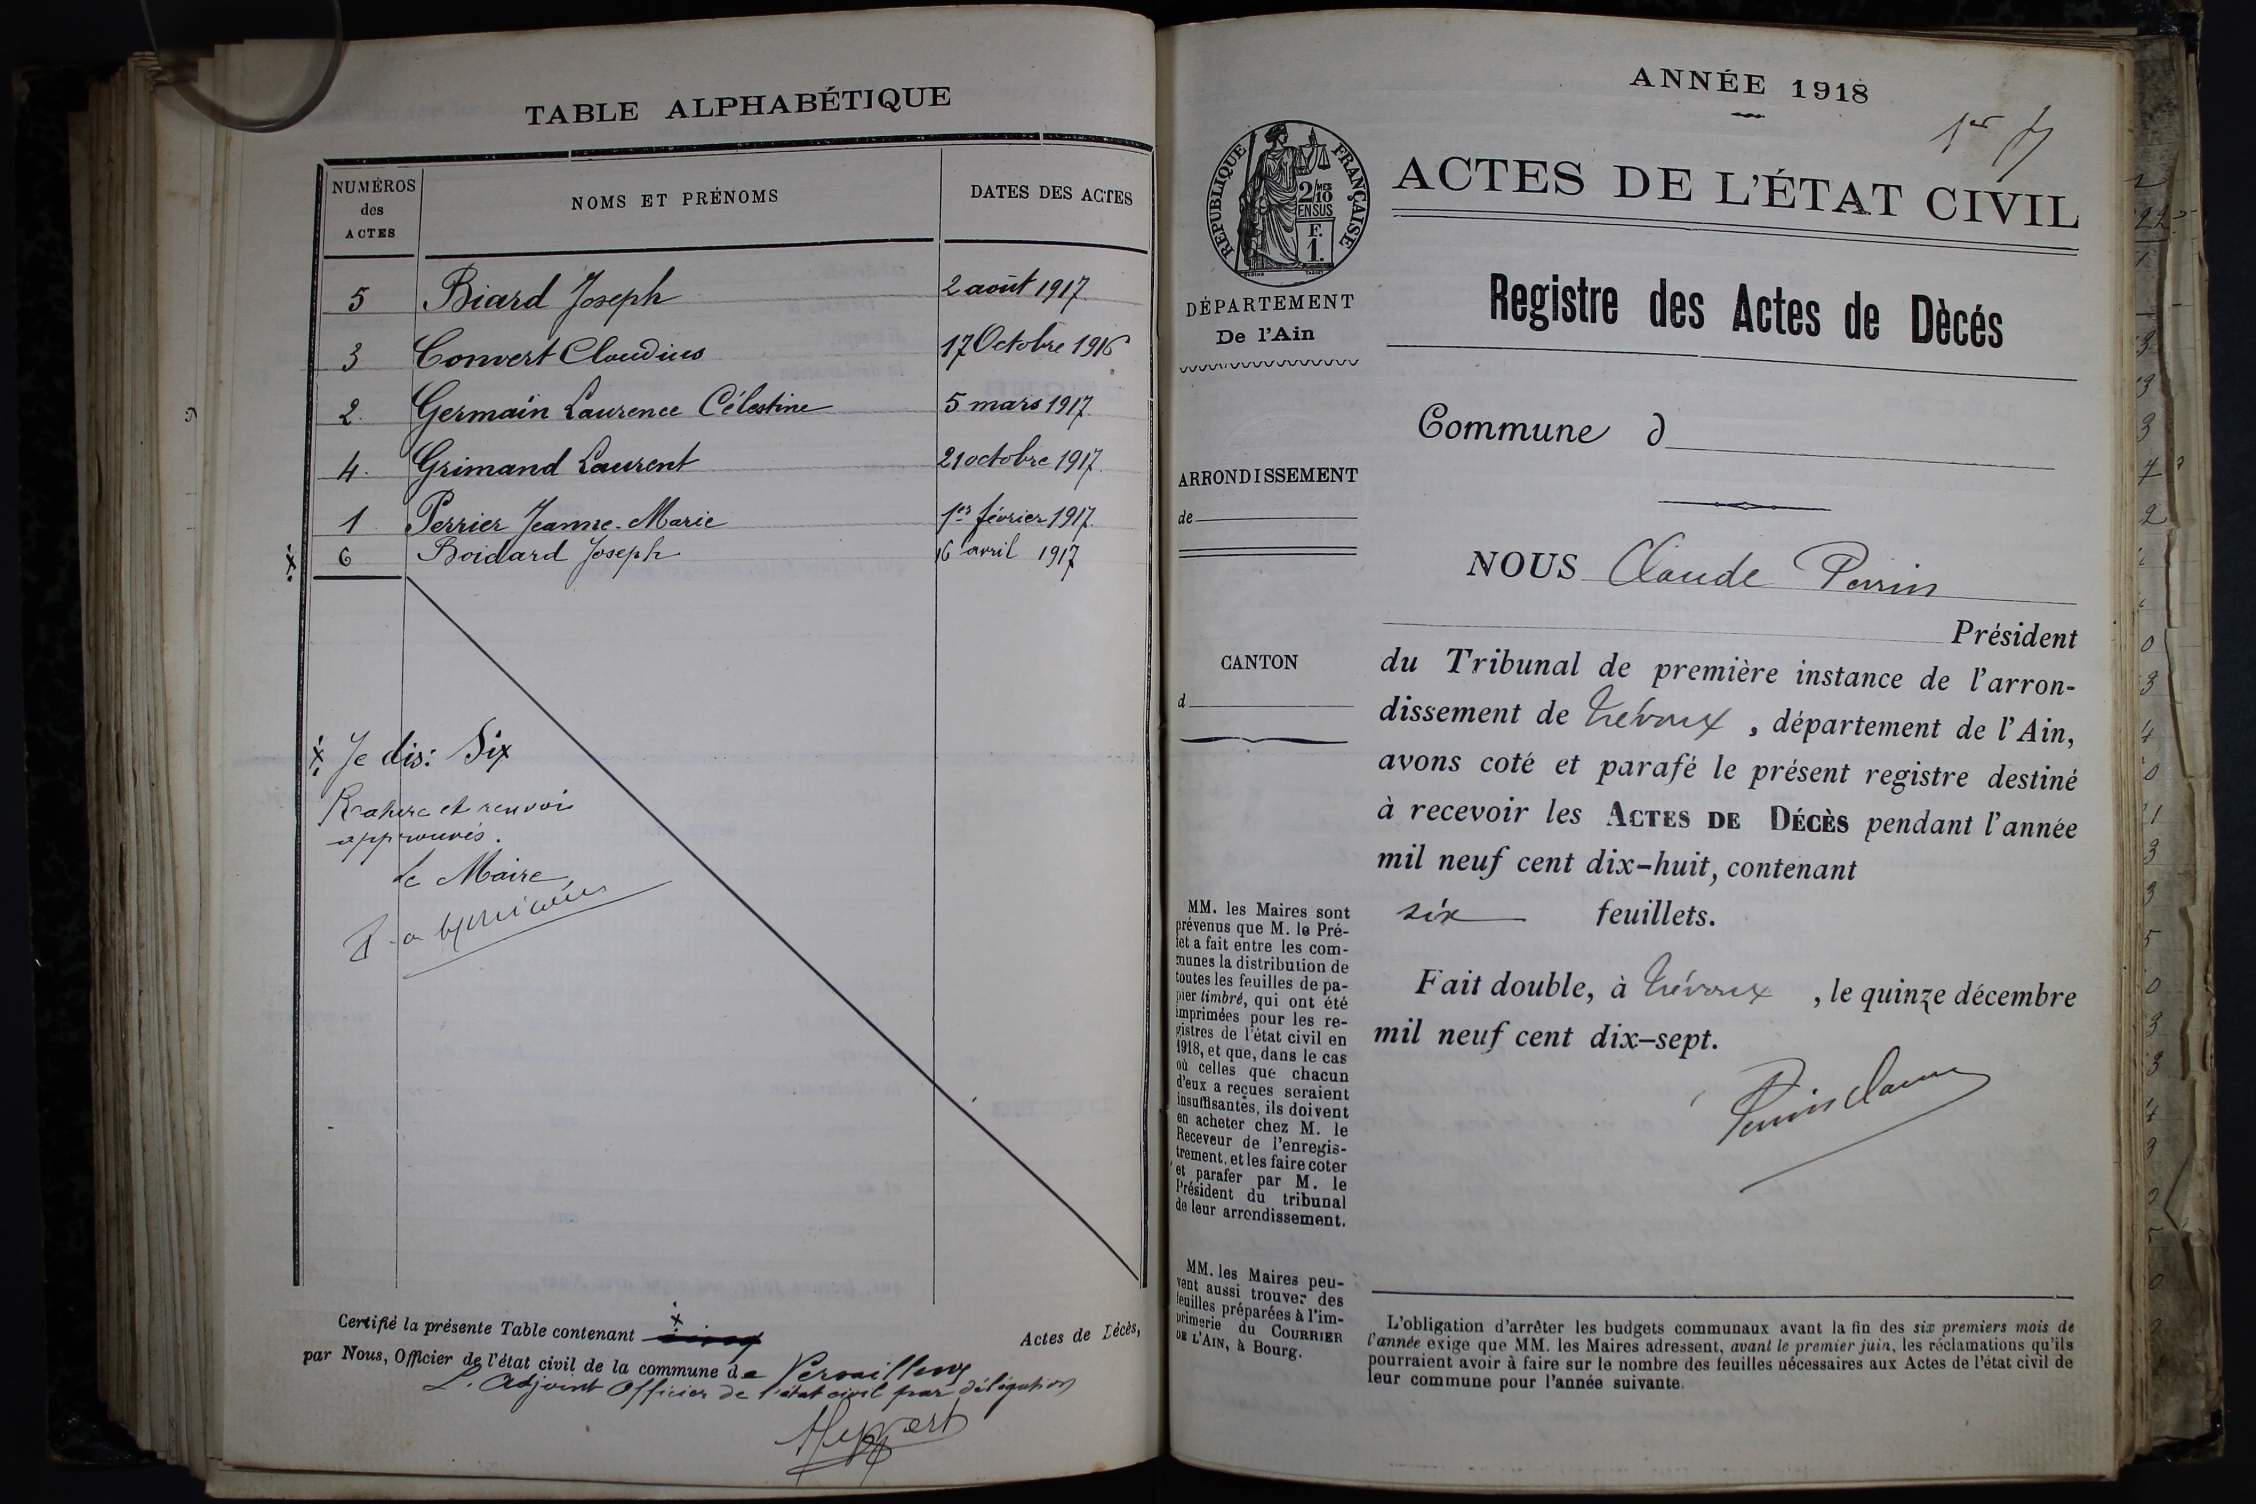 TABLE ALPHABÉTIQUE
NUMÉROS
des
ACTES
NOMS ET PRÉNOMS
DATES DES ACTES
5 Biard Joseph 2 août 1917.
3 Convert Claudius 17 Octobre 1916
2. Germain Laurence Célestine 5 mars 1917.
4. Grimand Laurent 21 octobre 1917.
1 Perrier Jeanne-Marie 1er février 1917.
6 Boidard Joseph 16 avril 1917
Je dis: Six
Rature et renvoi
approuvés.
Le Maire
Certifié la présente Table contenant Actes de Décès,
par Nous, Officier de l'état civil de la commune de
L'Adjoint Officier de l'état civil par délégation
ANNÉE 1918
1er
RÉPUBLIQUE FRANÇAISE
2/10 MES
EN SUS
F.
1.
DÉPARTEMENT
De l'Ain
ARRONDISSEMENT
de
CANTON
d
MM. les Maires sont
prévenus que M. le Pré-
fet a fait entre les com-
munes la distribution de
toutes les feuilles de pa-
pier timbré, qui ont été
imprimées pour les re-
gistres de l'état civil en
1918, et que, dans le cas
où celles que chacun
d'eux a reçues seraient
insuffisantes, ils doivent
en acheter chez M. le
Receveur de l'enregis-
trement, et les faire coter
et parafer par M. le
Président du tribunal
de leur arrondissement.
MM. les Maires peu-
vent aussi trouver des
feuilles préparées à l'im-
primerie du COURRIER
DE L'AIN, à Bourg.
ACTES DE L'ÉTAT CIVIL
Registre des Actes de Dècés
Commune d
NOUS Claude Perrin
Président
du Tribunal de première instance de l'arron-
dissement de Trévoux, département de l'Ain,
avons coté et parafé le présent registre destiné
à recevoir les ACTES DE DÉCÈS pendant l'année
mil neuf cent dix-huit, contenant
six feuillets.
Fait double, à Trévoux, le quinze décembre
mil neuf cent dix-sept.
L'obligation d'arrêter les budgets communaux avant la fin des six premiers mois de
l'année exige que MM. les Maires adressent, avant le premier juin, les réclamations qu'ils
pourraient avoir à faire sur le nombre des feuilles nécessaires aux Actes de l'état civil de
leur commune pour l'année suivante.